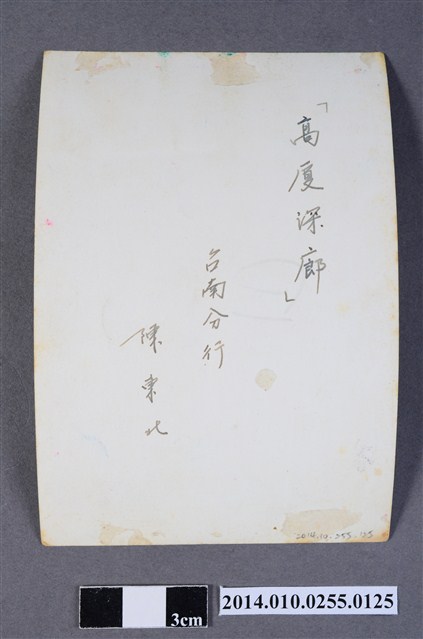 「高厦深廊」
台南分行
陳東北
2014.10.255.125
3cm
2014.010.0255.0125